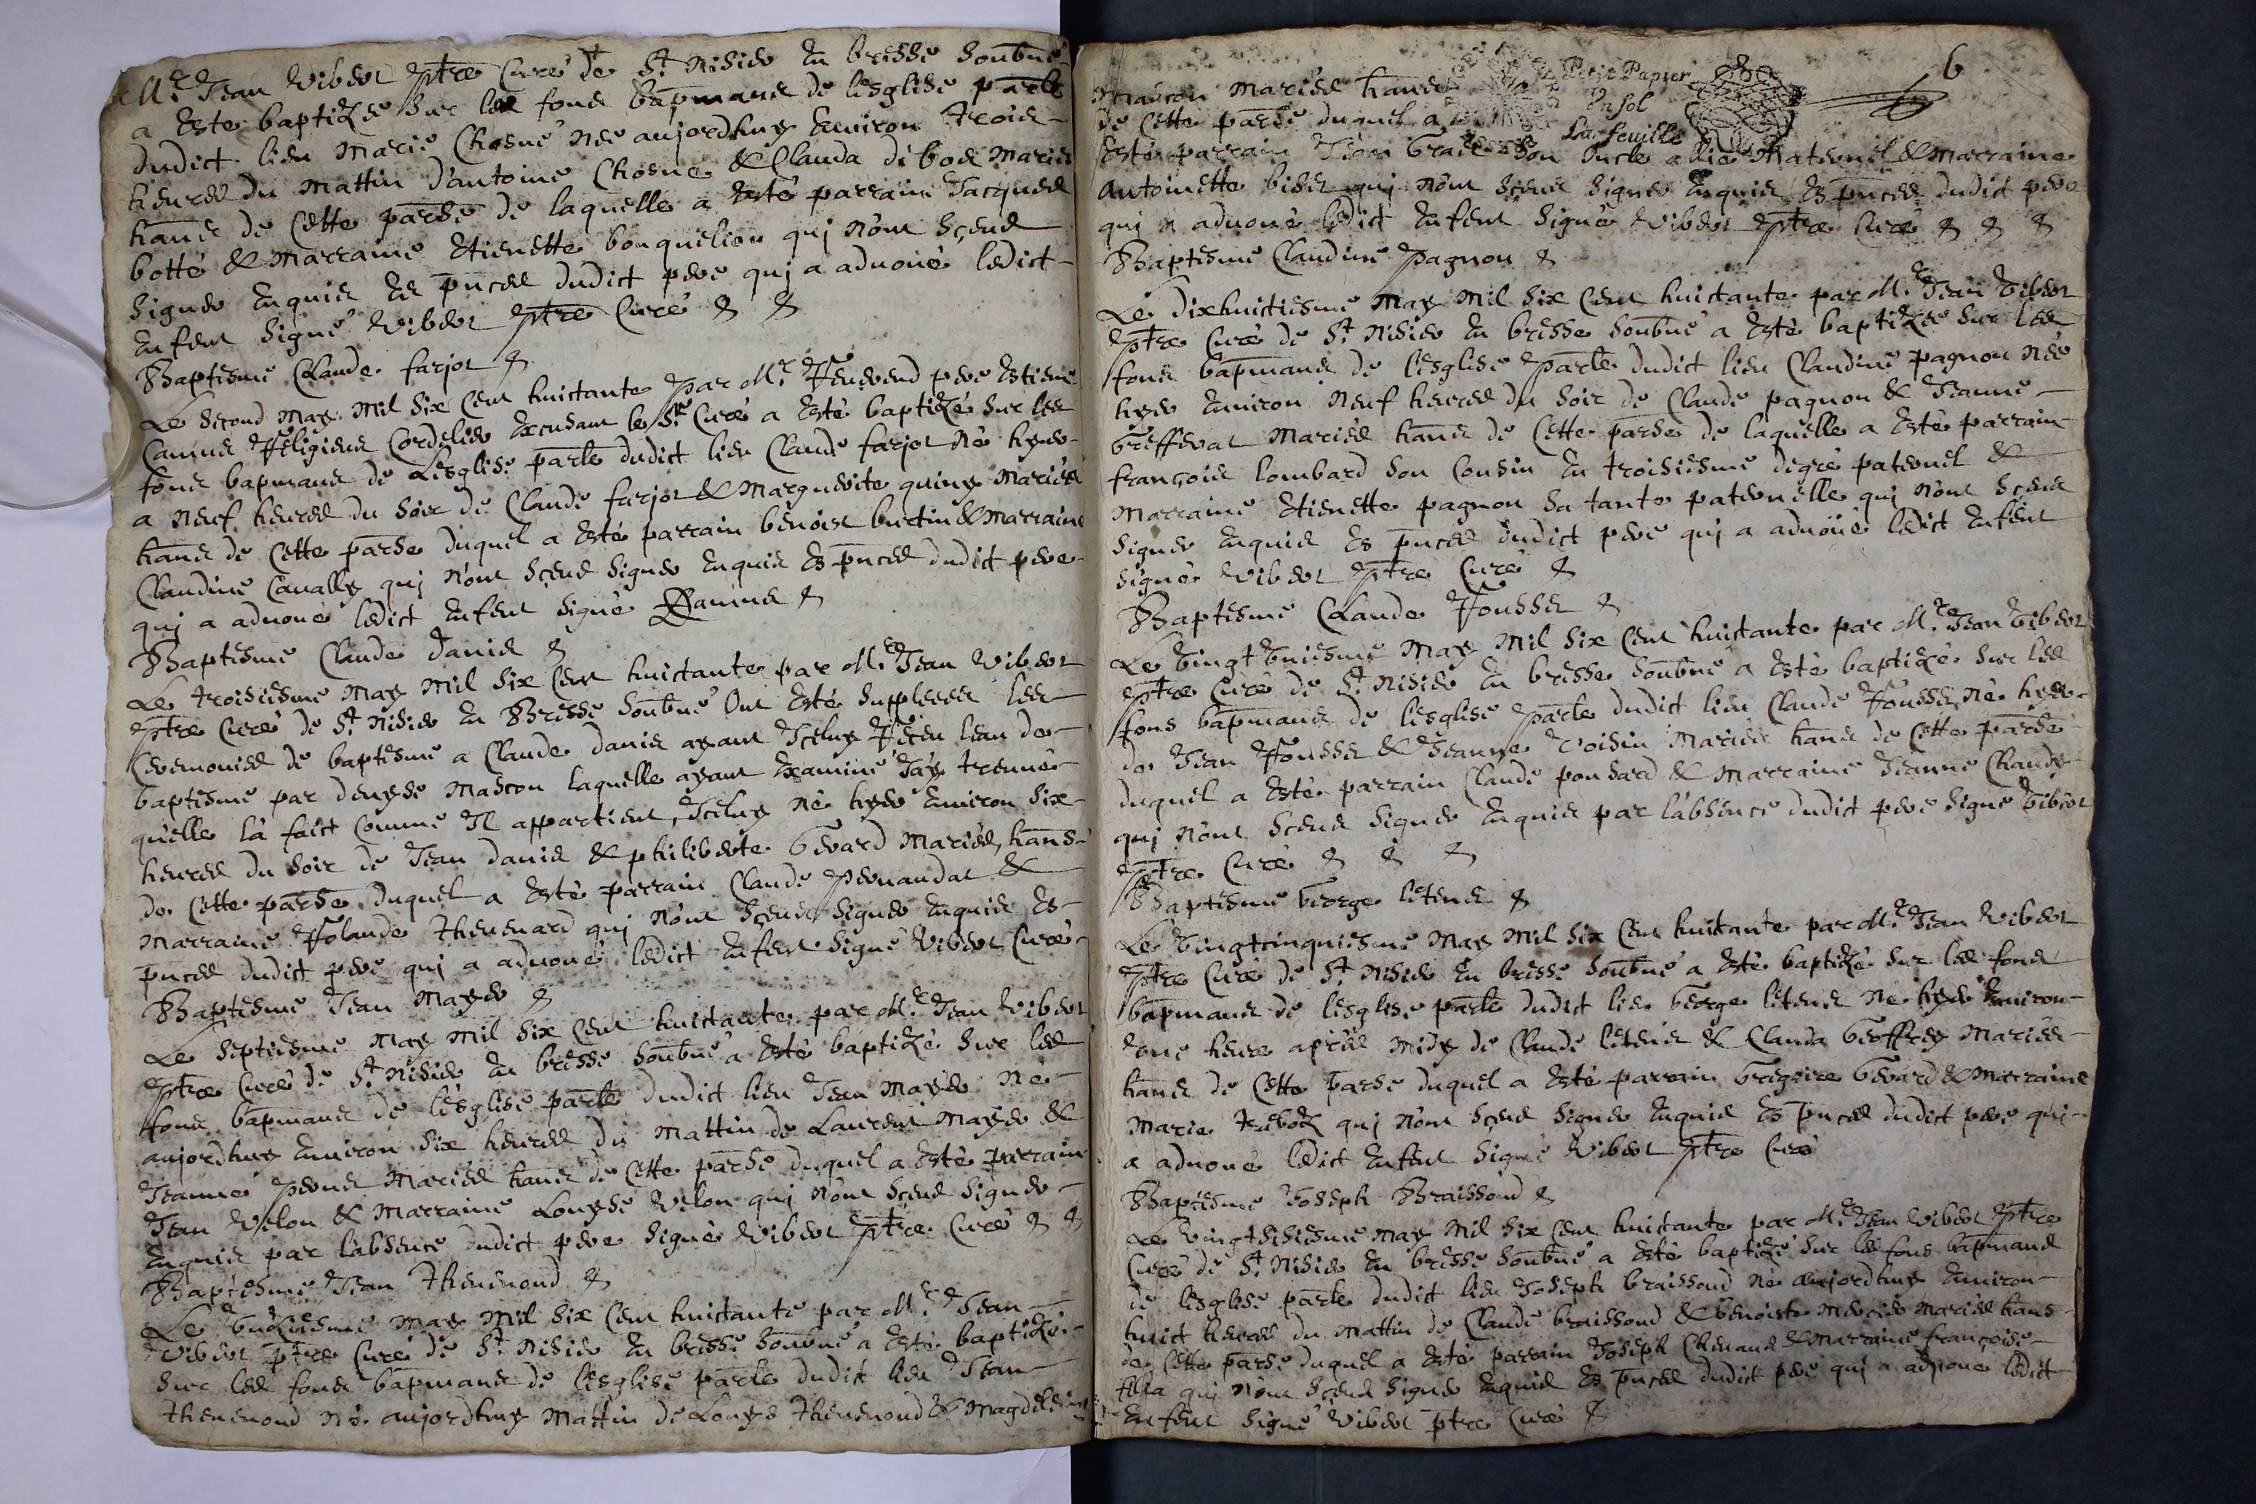 Mre Jean Vibert ptre Curé de St Nisier En bresse soubné
a Esté baptizée sur les fons bapmaus de lesglise parle
dudict lieu Marie Chosne née aujordhuy Environ trois
heures du Mattin d'antoine Chosne & Clauda debost Mariés
hans de Cette parse de laquelle a Esté parrain Jacques
botte & Marraine Etienette bonquelion quj n'ont sçeus
signer Enquis Es pnces dudict pere quj a aduoué ledict
Enfent signé Vibert ptre Curé & &
Baptesme Claude farjot &
Le second may Mil six Cent huictante par Mr Reverend pere Estiene
Camus Religieux Cordelier Excusant le Sr Curé a Esté baptizé sur les
fons bapmaus de Lesglise parle dudict lieu Claude farjot né hyer
a Neuf heures du soir de Claude farjot & Marguerite quiny Mariés
hans de Cette parse duquel a Esté parrain benoist burtin & Marraine
Claudine Cavally quj n'ont sçeus signer Enquis Es pnces dudict pere
quj a aduoué ledict Enfent signé Camus &
Baptesme Claude danis &
Le troisiesme May Mil six Cent huictante par Mre Jean Vibert
ptre Curé de St Nisier En Bresse soubné Ont Esté supplees les
Ceremonies de baptesme a Claude danis ayant Iceluy Receu leau de
baptesme par denyse Mascon laquelle ayant Examiné J'ay treuué
quelle l'a faict Comme Il appartient, Iceluy né hyer Environ six
heures du soir de Jean danis & philiberte Gevard Mariés, hans
de Cette parse duquel a Esté parrain Claude pernandat &
Marraine Yolande thevenard quj n'ont sçeus signer Enquis Es
pnces dudict pere quj a aduoué ledict Enfent signé Vibert Curé
Baptesme Jean Mayer &
Le septiesme May Mil six Cent huictante par Mre Jean Vibert
ptre Curé de St Nisier En bresse soubné a Esté baptizé sur les
fons bapmaus de lesglise parle dudict lieu Jean Mayer né
aujordhuy Environ six heures du Mattin de Laurent Mayer &
Jeanne perus Mariés hans de Cette parse duquel a Esté parrain
Jean Velon & Marraine Louyse Velon quj n'ont sçeus signer
Enquis par labsence dudict pere signé Vibert ptre Curé & &
Baptesme Jean thevenond &
Le unziesme May Mil six Cent huictante par Mre Jean
Vibert ptre Curé de St Nisier En bresse soubné a Esté baptizé
sur les fons bapmaus de lesglise parle dudict lieu Jean
thevenond né aujordhuy Mattin de Louys thevenond & Magdeleine
6
Petit Papier
Un sol
La feuille
Mascon Mariés hans
de Cette parse duquel a
Esté parrain Jean son Oncle allié Maternel & Marraine
Antoinette bisat quj n'ont sçeus signer Enquis Es pnces dudict pere
quj a aduoué ledict Enfent signé Vibert ptre Curé & & &
Baptesme Claudine pagnon &
Le dixhuictiesme May Mil six Cent huictante par Mre Jean Vibert
ptre Curé de St Nisier En bresse soubné a Esté baptizée sur les
fons bapmaus de lesglise parle dudict lieu Claudine pagnon née
hyer Environ Neuf heures du soir de Claude pagnon & Jeanne
Greffevat Mariés hans de Cette parse de laquelle a Esté parrain
françois lombard son Cousin En troisiesme degré paternel &
Marraine Etienette pagnon sa tante paternelle quj n'ont sçeus
signer Enquis Es pnces dudict pere quj a aduoué ledict Enfent
signé Vibert ptre Curé &
Baptesme Claude Rousset &
Le Vingt Uniesme May Mil six Cent huictante par Mre Jean Vibert
ptre Curé de St Nisier En bresse soubné a Esté baptizé sur les
fons bapmaus de lesglise parle dudict lieu Claude Rousset né hyer
de Jean Rousset & Jeanne Voisin Mariés hans de Cette parse
duquel a Esté parrain Claude ponsard & Marraine Jeanne Chandy
quj n'ont sçeus signer Enquis par labsence dudict pere signé Vibert
ptre Curé & & &
Baptesme George letens &
Le Vingtcinquiesme May Mil six Cent huictante par Mre Jean Vibert
ptre Curé de St Nisier En bresse soubné a Esté baptizé sur les fons
bapmaus de lesglise parle dudict lieu George letens né hyer Environ
une heure apres Midy de Claude letens & Clauda Geoffrey Mariés
hans de Cette parse duquel a Esté parrain Gregoire Gevard & Marraine
Marie treboz quj n'ont sçeus signer Enquis Es pnces dudict pere quj
a aduoué ledict Enfent signé Vibert ptre Curé
Baptesme Joseph Braissoud &
Le Vingtsixiesme May Mil six Cent huictante par Mre Jean Vibert ptre
Curé de St Nisier En bresse soubné a Esté baptizé sur les fons bapmaus
de lesglise parle dudict lieu Joseph braissoud né aujordhuy Environ
huict heures du Mattin de Claude braissoud & benoiste Mercier Mariés hans
de Cette parse duquel a Esté parrain Joseph Chevaux & Marraine françoise
filia quj n'ont sçeus signer Enquis Es pnces dudict pere quj a aduoué ledict
Enfent signé Vibert ptre Curé &